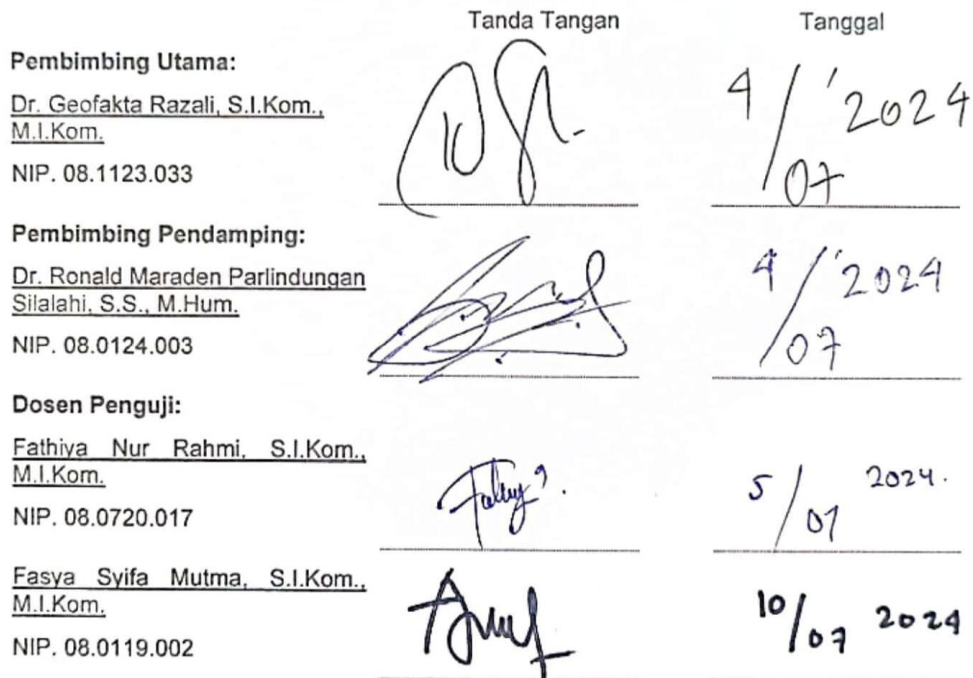 Tanda Tangan Tanggal
Pembimbing Utama:
Dr. Geofakta Razali, S.I.Kom.,
M.I.Kom.
NIP. 08.1123.033
4/07 '2024
Pembimbing Pendamping:
Dr. Ronald Maraden Parlindungan
Silalahi, S.S., M.Hum.
NIP. 08.0124.003
4/07 '2024
Dosen Penguji:
Fathiya Nur Rahmi, S.I.Kom.,
M.I.Kom.
NIP. 08.0720.017
5/07 2024.
Fasya Syifa Mutma, S.I.Kom.,
M.I.Kom.
NIP. 08.0119.002
10/07 2024